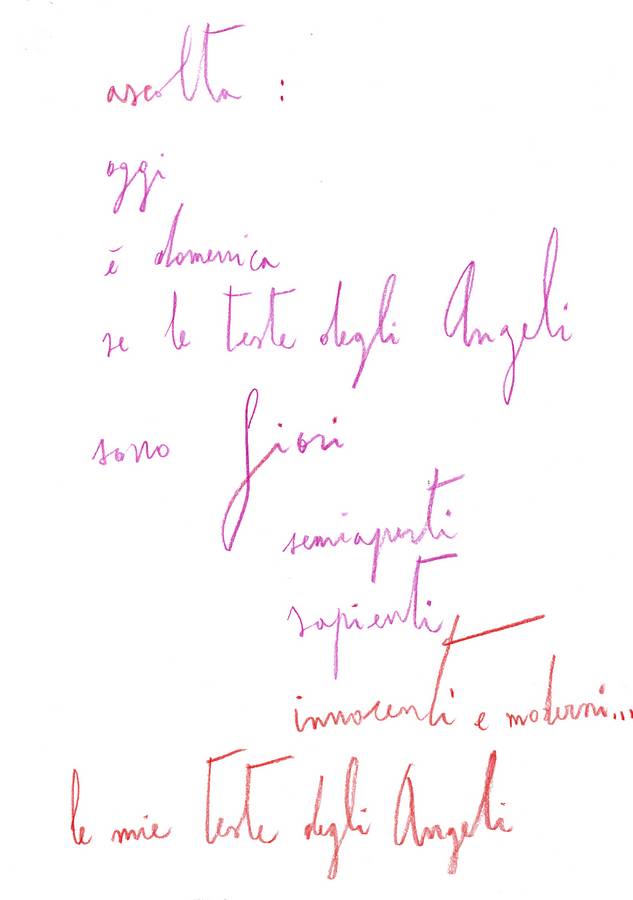 ascolta :
oggi
è domenica
se le teste degli Angeli
sono fiori
semiaperti
sapienti
innocenti e moderni...
le mie teste degli Angeli